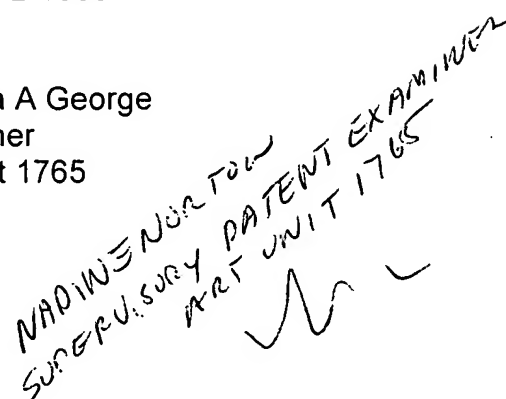 a A George
ner
t 1765
NADINE NORTON
SUPERVISORY PATENT EXAMINER
ART UNIT 1765